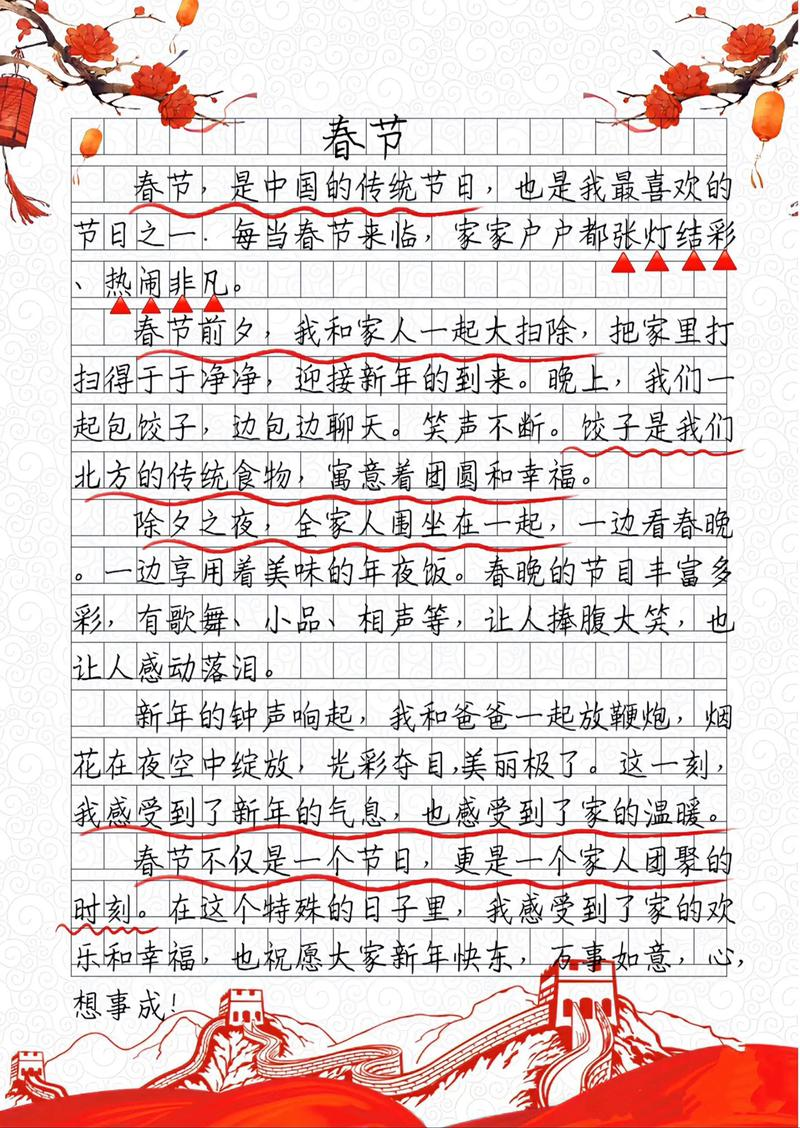 春节
春节，是中国的传统节日，也是我最喜欢的
节日之一．每当春节来临，家家户户都张灯结彩
、热闹非凡。
春节前夕，我和家人一起大扫除，把家里打
扫得干干净净，迎接新年的到来。晚上，我们一
起包饺子，边包边聊天。笑声不断。饺子是我们
北方的传统食物，寓意着团圆和幸福。
除夕之夜，全家人围坐在一起，一边看春晚
。一边享用着美味的年夜饭。春晚的节目丰富多
彩，有歌舞、小品、相声等，让人捧腹大笑，也
让人感动落泪。
新年的钟声响起，我和爸爸一起放鞭炮，烟
花在夜空中绽放，光彩夺目,美丽极了。这一刻，
我感受到了新年的气息，也感受到了家的温暖。
春节不仅是一个节日，更是一个家人团聚的
时刻。在这个特殊的日子里，我感受到了家的欢
乐和幸福，也祝愿大家新年快东，万事如意，心，
想事成！